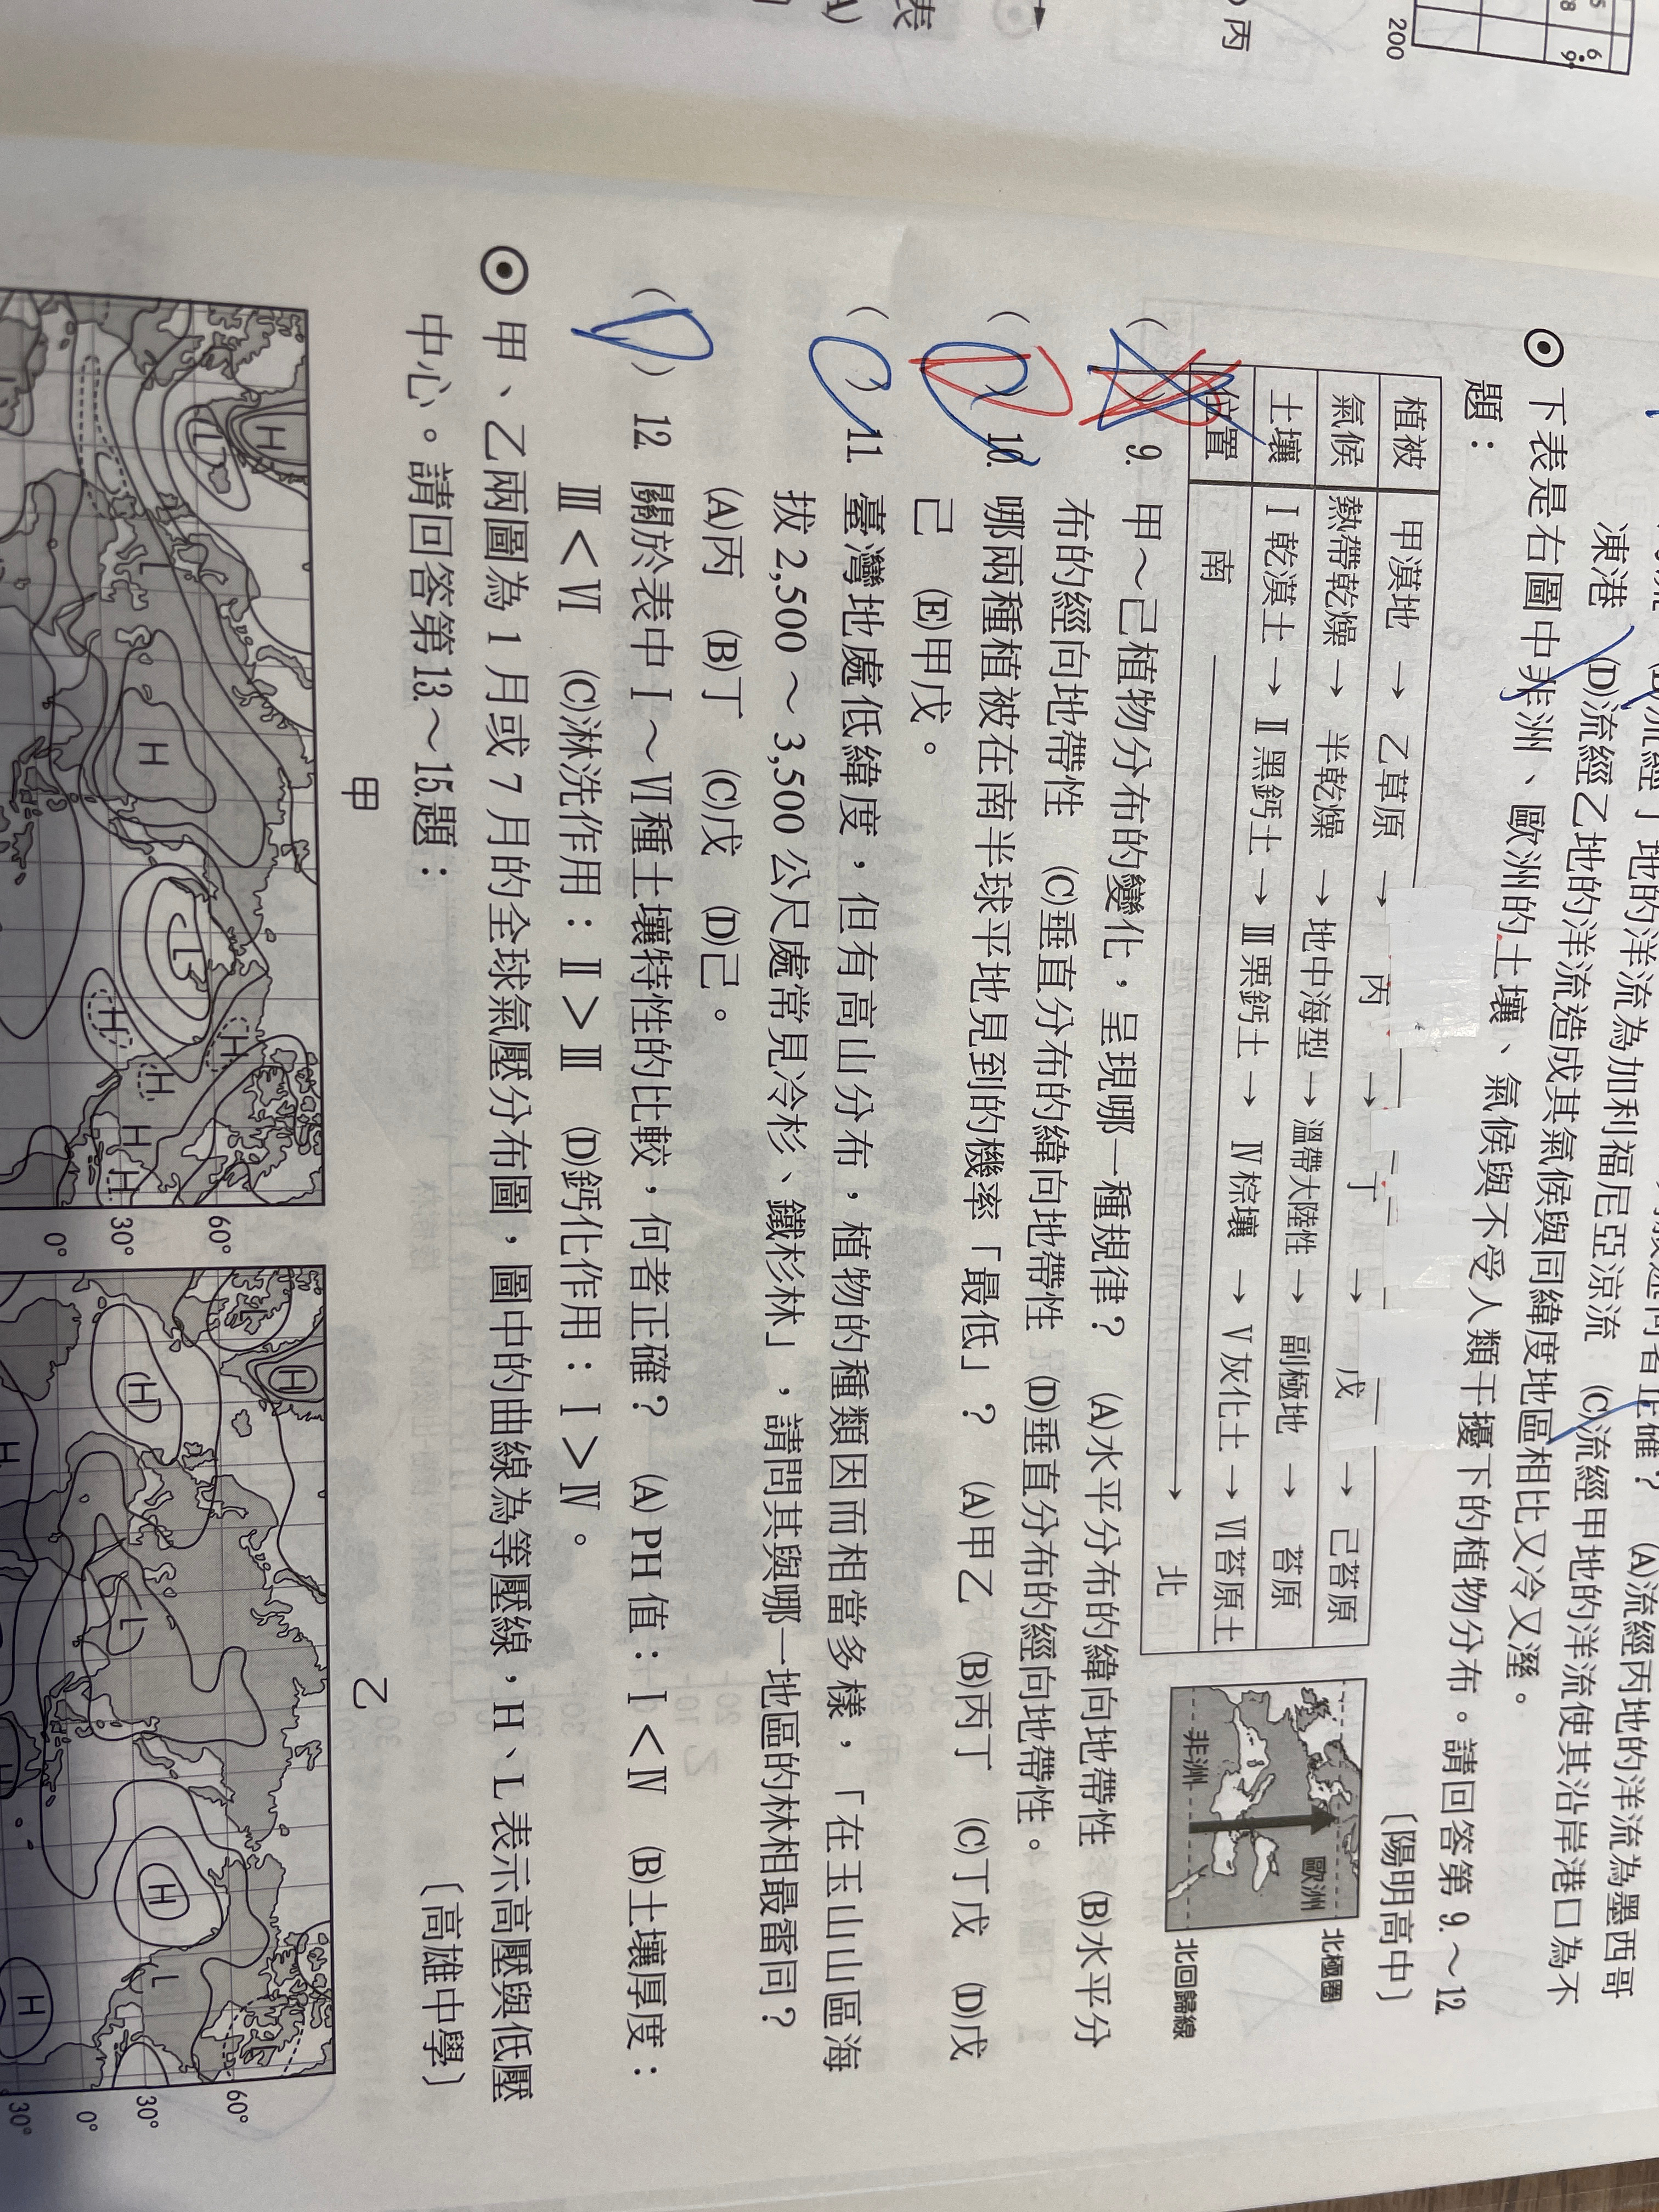 200
丙
表
凍港 (D)流經乙地的洋流造成其氣候與同緯度地區相比又冷又溼。
◉ 下表是右圖中非洲、歐洲的土壤、氣候與不受人類干擾下的植物分布。請回答第 9.～12.
題： 〔陽明高中〕
植被 甲漠地 → 乙草原 → 丙 → 丁 → 戊 → 己苔原
氣候 熱帶乾燥 → 半乾燥 → 地中海型 → 溫帶大陸性 → 副極地 → 苔原
土壤 Ⅰ乾漠土 → Ⅱ黑鈣土 → Ⅲ栗鈣土 → Ⅳ棕壤 → Ⅴ灰化土 → Ⅵ苔原土
位置 南 → 北
歐洲
非洲
北極圈
北回歸線
( ) 9. 甲～己植物分布的變化，呈現哪一種規律？ (A)水平分布的緯向地帶性 (B)水平分
布的經向地帶性 (C)垂直分布的緯向地帶性 (D)垂直分布的經向地帶性。
( ) 10. 哪兩種植被在南半球平地見到的機率「最低」？ (A)甲乙 (B)丙丁 (C)丁戊 (D)戊
己 (E)甲戊。
( ) 11. 臺灣地處低緯度，但有高山分布，植物的種類因而相當多樣，「在玉山山區海
拔 2,500 ～ 3,500 公尺處常見冷杉、鐵杉林」，請問其與哪一地區的林相最雷同？
(A)丙 (B)丁 (C)戊 (D)己。
( ) 12. 關於表中Ⅰ～Ⅵ種土壤特性的比較，何者正確？ (A) PH 值：Ⅰ＜Ⅳ (B)土壤厚度：
Ⅲ＜Ⅵ (C)淋洗作用：Ⅱ＞Ⅲ (D)鈣化作用：Ⅰ＞Ⅳ。
◉ 甲、乙兩圖為 1 月或 7 月的全球氣壓分布圖，圖中的曲線為等壓線，H、L 表示高壓與低壓
中心。請回答第 13.～15.題： 〔高雄中學〕
甲
乙
H
L
H
L
H
H
H
H
H
60°
30°
0°
L
H
H
L
H
L
H
H
60°
30°
0°
30°